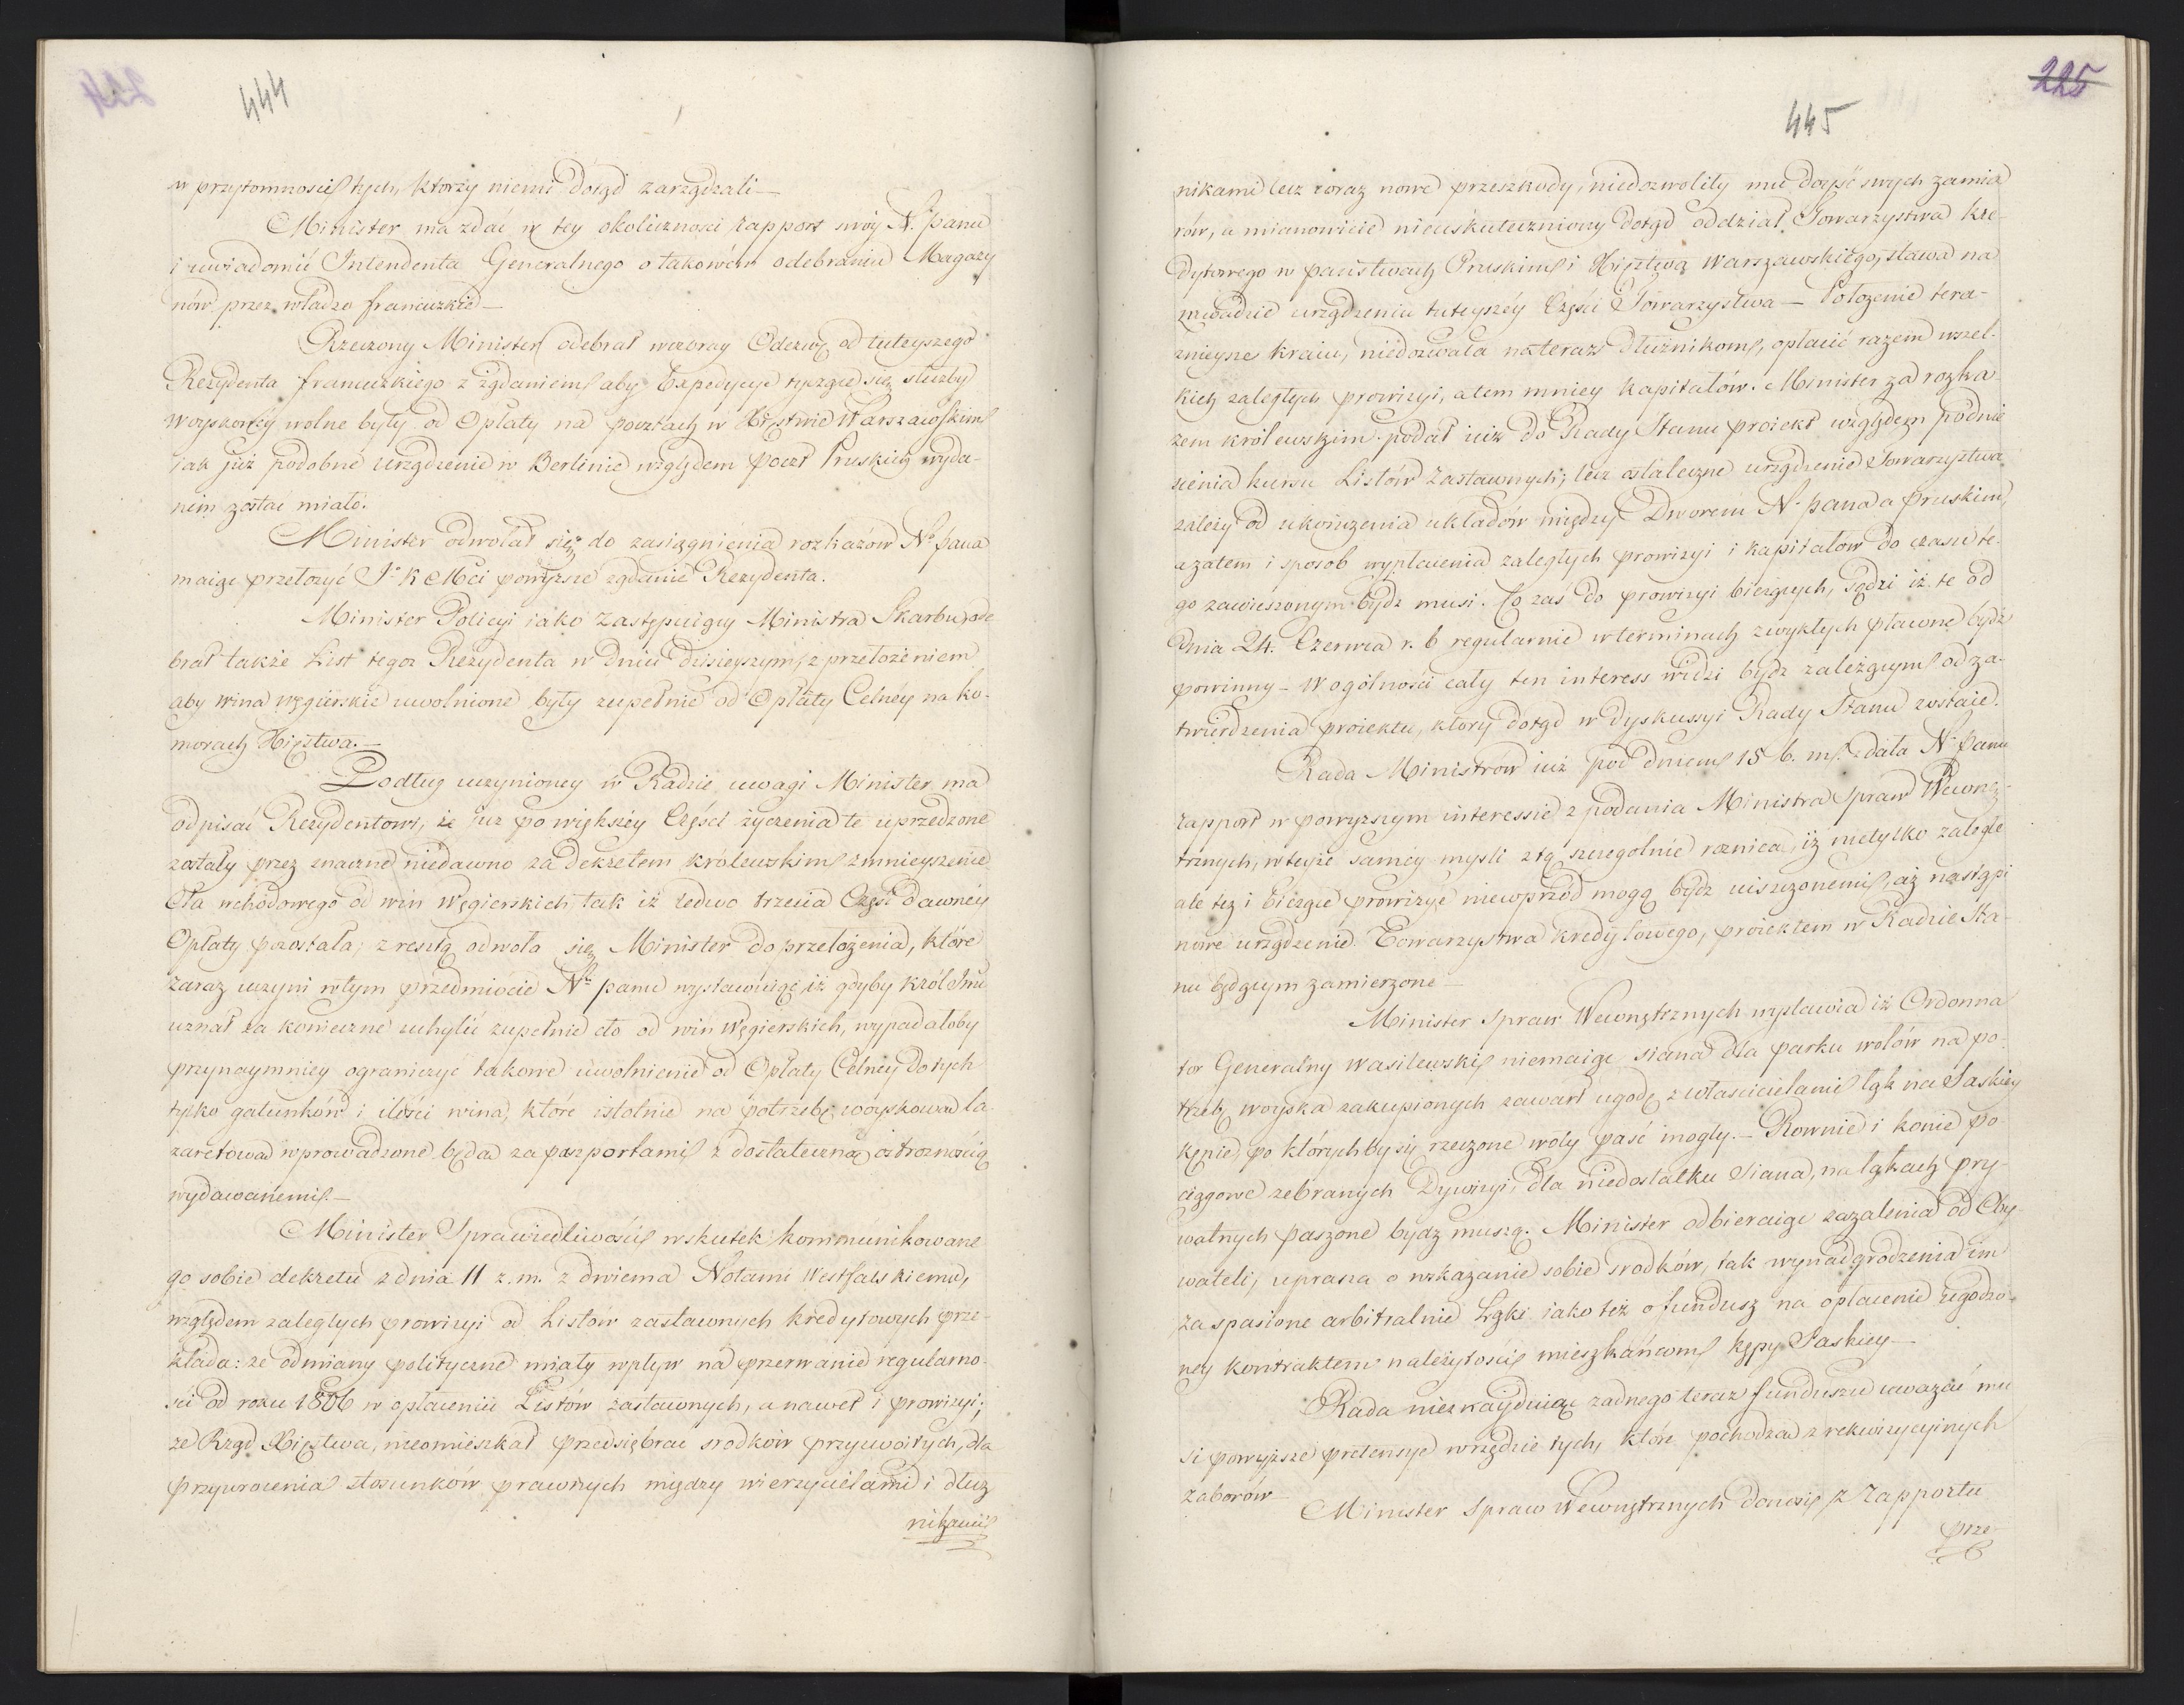 444
w przytomności tych, ktorzy niemi dotąd zarządzali —
Minister ma zdać w tey okoliczności rapport swóy N. Panu
i uwiadomić Intendenta Generalnego o takowém odebraniu Magazy
nów przez władze francuzkie —
Rzeczony Minister odebrał wczoray Odezwę od tuteyszego
Rezydenta francuzkiego z żądaniem aby Expedycye tyczące się służby
woyskowéy wolne były od Opłaty na pocztach w Xięstwie Warszawskim
iak już podobné urządzenie w Berlinie względem Poczt Pruskich wyda-
ném zostać miało.
Minister odwołał się do zasiągnienia rozkazów No Pana
maiąc przełożyć J. K Mci powyższe żądanie Rezydenta.
Minister Policyi iako zastępuiący Ministra Skarbu, ode
brał także List tegoż Rezydenta w dniu dzisieyszym, z przełożeniem
aby wina węgierskie uwolnione były zupełnie od Opłaty Celnéy na ko-
morach Xięstwa. —
Podług uczynioney w Radzie uwagi Minister ma
odpisać Rezydentowi, że iuż po większéy Części życzenia te uprzedzone
zostały przez znaczne niedawno za dekretem królewskim zmnieyszenie
Cła wchodowego od win Węgierskich, tak iż ledwo trzecia Część dawnéy
Opłaty pozostała; z resztą odwoła się Minister do przełożenia, które
zaraz uczyni w tym przedmiocie No Panu wystawuiąc, iż gdyby Król Jmć
uznał za konieczne uchylić zupełnie cło od win Węgierskich, wypadałoby
przynaymniey ograniczyć takowe uwolnienie od Opłaty Celnéy do tych
tylko gatunków i ilości wina, które istotnie na potrzebę woyskową la-
zaretową wprowadzone będą za paszportami z dostateczną ostrożnością
wydawanemi. —
Minister Sprawiedliwości w skutek kommunikowane
go sobie dekretu z dnia 11 z. m. z dwiema Notami Westfalskiemi,
względem zaległych prowizyi od Listów zastawnych kredytowych prze-
kłada: że odmiany polityczne miały wpływ na przerwanie regularno-
ści od roku 1806 w opłaceniu Listów zastawnych, a nawet i prowizyi;
że Rząd Xięstwa, nieomieszkał przedsiębrać srodków przyzwoitych, dla
przywrocenia stosunków prawnych między wierzycielami i dłuż
nikami
225
445
nikami lecz coraz nowe przeszkody, niedozwoliły mu doyść swych zamia
rów, a mianowicie nieuskuteczniony dotąd oddział Towarzystwa kre-
dytowego w państwach Pruskim i Xięztwa Warszawskiego, stawa na
zawadzie urządzeniu tuteyszéy Części Towarzystwa — Położenie tera-
znieysze kraiu, niedozwala na teraz Dłużnikom, opłacić razem wszel-
kich zaległych prowizyi, a tem mniey kapitałów. Minister za rozka
zem królewskim podał iuż do Rady Stanu proiekt względem podnie
sienia kursu Listów Zastawnych; lecz ostateczne urządzenie Towarzystwa
zależy od ukończenia układów między Dworem N. Pana a Pruskim,
a zatem i sposob wypłacenia zaległych prowizyi i kapitałów do czasu te-
go zawieszonym bydź musi. Co zaś do prowizyi bieżących, sądzi iż te od
dnia 24. Czerwca r. b regularnie w terminach zwykłych płacone bydź
powinny — W ogólności cały ten interess widzi bydź zależącym od za-
twierdzenia proiektu, ktory dotąd w dyskussyi Rady Stanu zostaie.
Rada Ministrów iuż pod dniem 15 b. m. zdała N. Panu
rapport w powyższym interessie z podania Ministra Spraw Wewnę-
trznych, w teyże saméy myśli z tą szczególnie roznicą, iż nietylko zaległe
ale też i bieżące prowizye niewprzód mogą bydź uiszczonemi, aż nastąpi
nowe urządzenie Towarzystwa kredytowego, proiektem w Radzie Sta-
nu będącym zamierzone —
Minister Spraw Wewnętrznych wystawia iż Ordonna
tor Generalny Wasilewski niemaiąc siana dla parku wołów na po-
trzeb woyska zakupionych zawarł ugodę z właścicielami łąk na Saskiey
Kępie, po których by się rzeczone woły paść mogły. — Rownie i konie po-
ciągowe zebranych Dywizyi, dla niedostatku Siana, na łąkach pry-
watnych paszone bydź muszą. Minister odbieraiąc zażalenia od Oby-
wateli, uprasza o wskazanie sobie srodków, tak wynadgrodzenia im
za spasione arbitralnie Łąki iako też o fundusz na opłacenie ugodzo-
ney kontraktem należytości mieszkańcom Kępy Saskiey —
Rada nieznayduiąc żadnego teraz funduszu uważać mu
si powyższe pretensye w rzędzie tych, które pochodzą z rekwizycyinych
zaborów —
Minister Spraw Wewnętrznych donosi z Rapportu
prze-